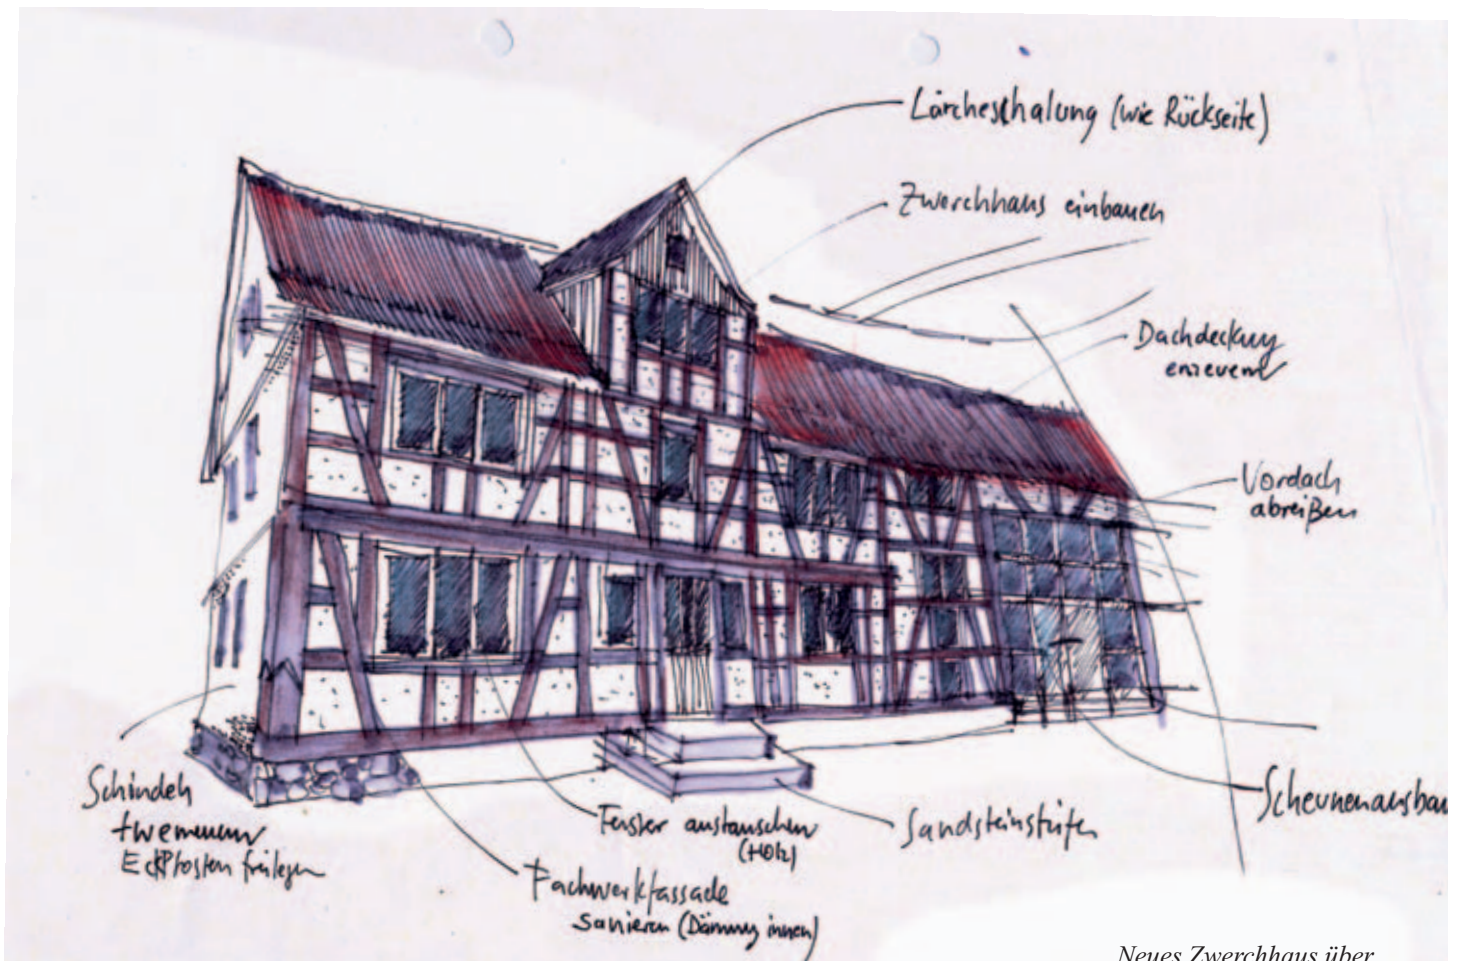 Lärcheschalung (wie Rückseite)
Zwerchhaus einbauen
Dachdeckung
erneuern
Vordach
abreißen
Scheunenausbau
Sandsteinstufen
Fenster austauschen
(Holz)
Fachwerkfassade
sanieren (Dämmung innen)
Schindeln
Eckpfosten freilegen
Neues Zwerchhaus über